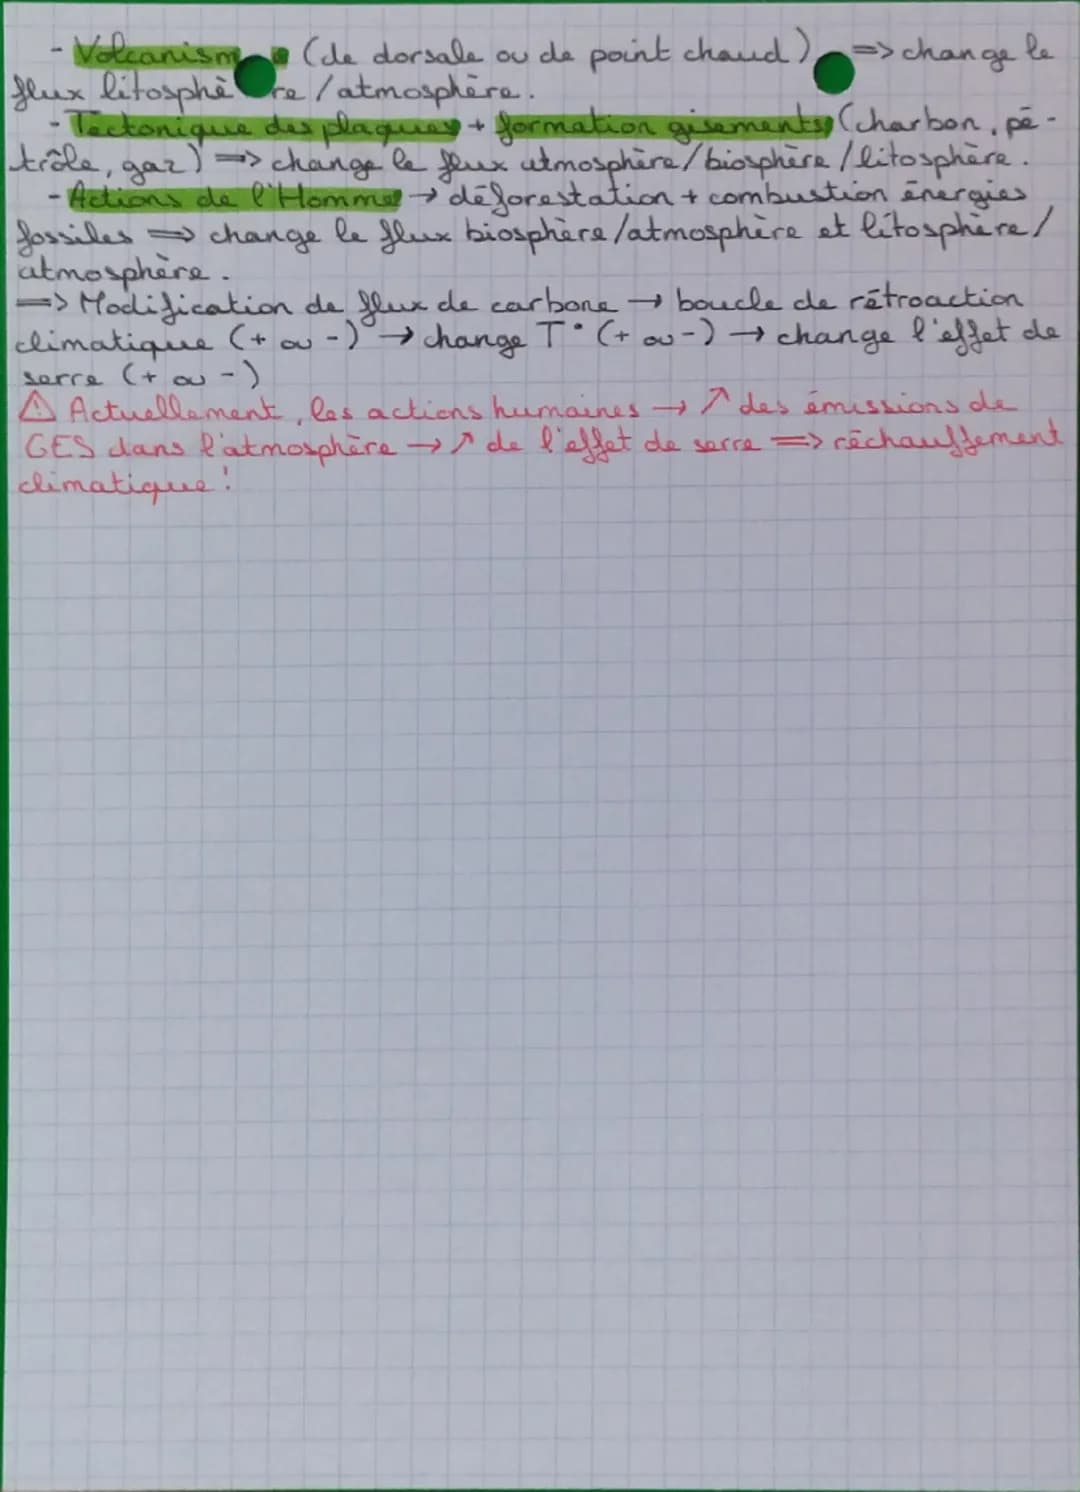 - Volcanisme (de dorsale ou de point chaud) => change le
flux litosphère / atmosphère.
- Tectonique des plaques + formation gisements (charbon, pé-
trôle, gaz) => change le flux atmosphère / biosphère / litosphère.
- Actions de l'Homme → déforestation + combustion énergies
fossiles => change le flux biosphère / atmosphère et litosphère /
atmosphère.
=> Modification de flux de carbone → boucle de rétroaction
climatique (+ ou -) → change T° (+ ou -) → change l'effet de
serre (+ ou -)
⚠ Actuellement, les actions humaines → ↗ des émissions de
GES dans l'atmosphère → ↗ de l'effet de serre => réchauffement
climatique !